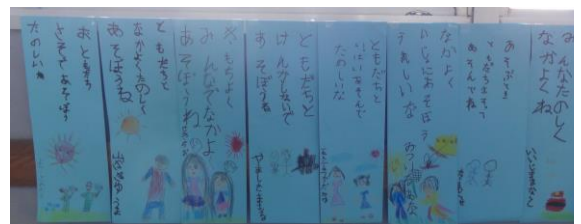 みんなたのしく
なかよくね
あそぶとき
ともだちさそって
あそんでね
なかよく
いっしょにあそぼう
うれしいな
ともだちと
いっぱいあそんで
たのしいな
ともだちと
けんかしないで
あそぼうね
きもちよく
みんなでなかよ
あそぼうね
ともだちと
なかよくたのしく
あそぼうね
おともだち
さそってあそぼう
たのしいね